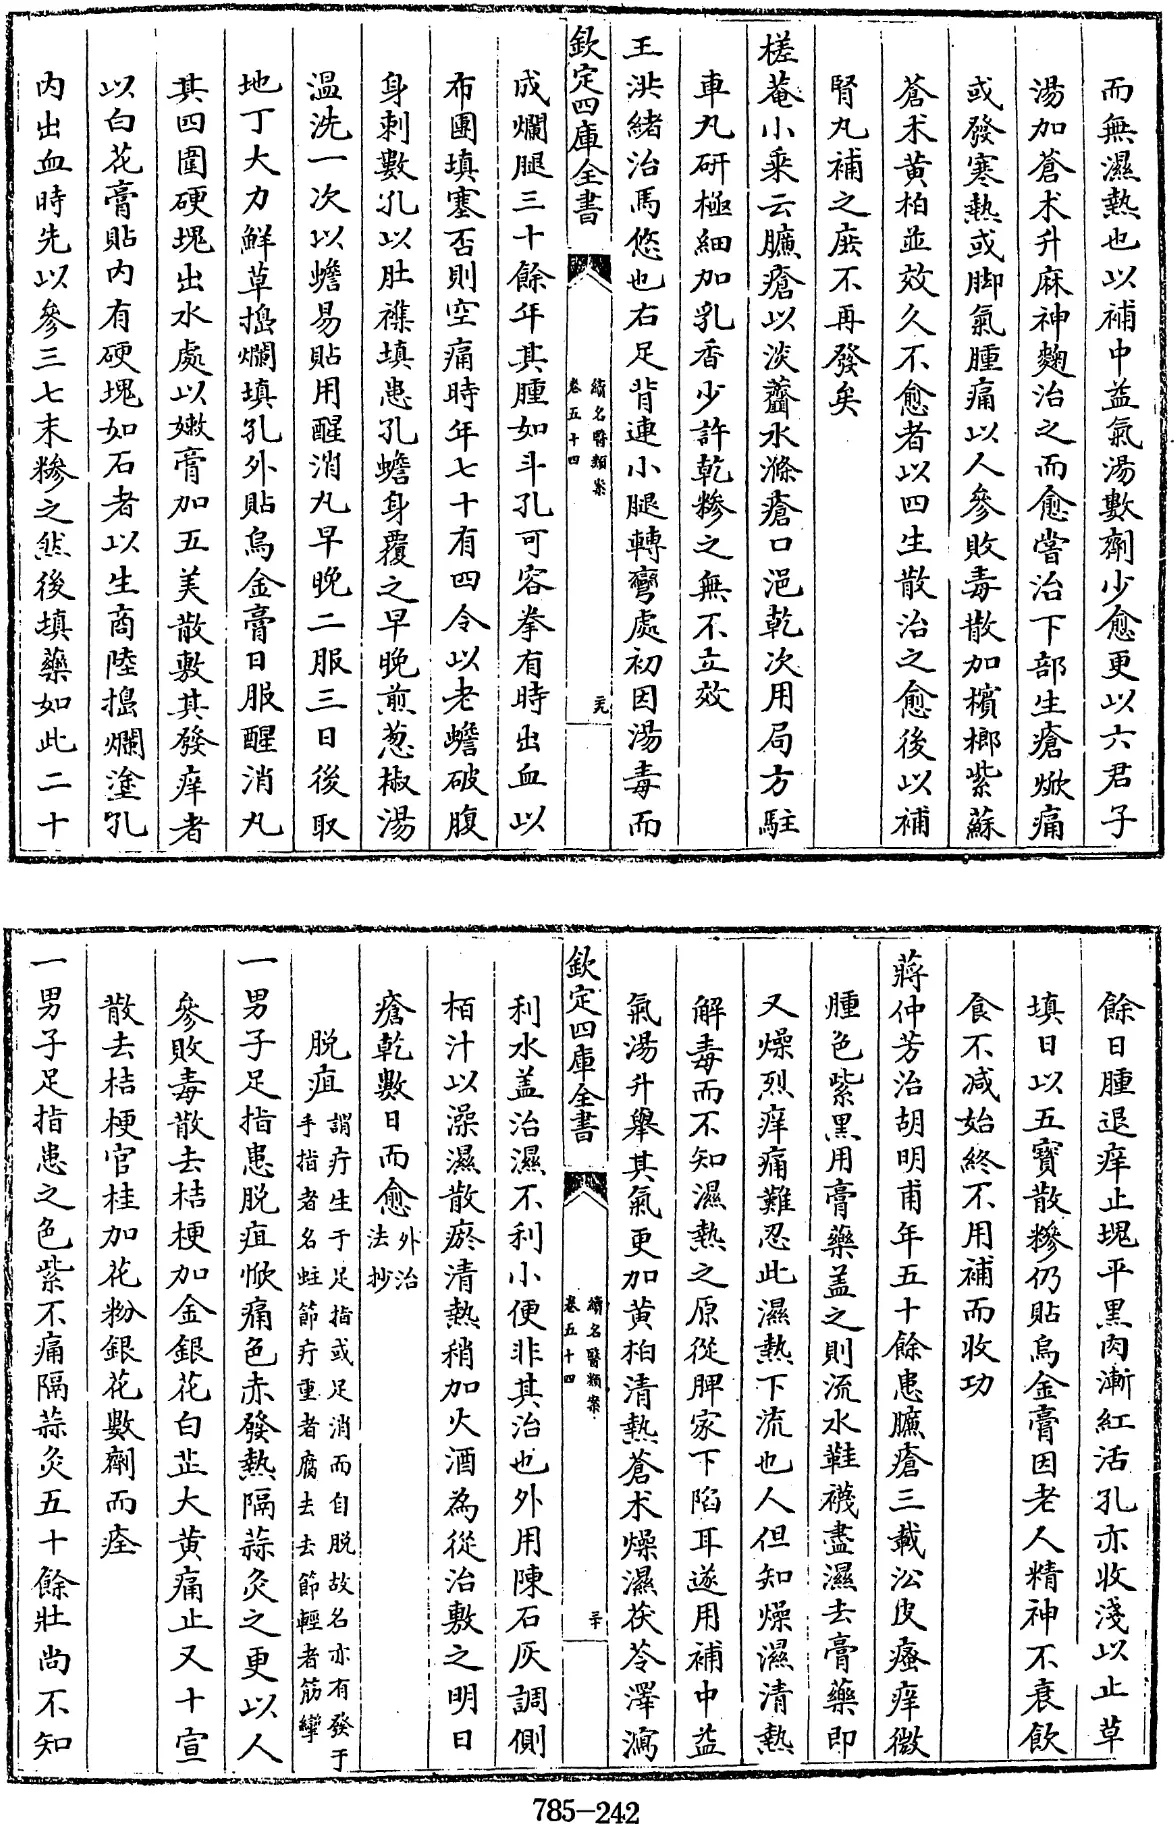 而無濕熱也以補中益氣湯數劑少愈更以六君子
湯加蒼朮升麻神麴治之而愈嘗治下部生瘡焮痛
或發寒熱或脚氣腫痛以人參敗毒散加檳榔紫蘇
蒼朮黄柏並效久不愈者以四生散治之愈後以補
腎丸補之庶不再發矣
槎菴小乘云臁瘡以淡虀水滌瘡口浥乾次用局方駐
車丸研極細加乳香少許乾糝之無不立效
王洪緒治馬悠也右足背連小腿轉彎處初因湯毒而
欽定四庫全書
續名醫類案
卷五十四
元
成爛腿三十餘年其腫如斗孔可容拳有時出血以
布團填塞否則空痛時年七十有四令以老蟾破腹
身刺數孔以肚襍填患孔蟾身覆之早晚煎葱椒湯
温洗一次以蟾易貼用醒消丸早晚二服三日後取
地丁大力鮮草搗爛填孔外貼烏金膏日服醒消丸
其四圍硬塊出水處以嫩膏加五美散敷其發痒者
以白花膏貼内有硬塊如石者以生商陸搗爛塗孔
内出血時先以參三七末糝之然後填藥如此二十
餘日腫退痒止塊平黒肉漸紅活孔亦收淺以止草
填日以五寶散糝仍貼烏金膏因老人精神不衰飲
食不減始終不用補而收功
蔣仲芳治胡明甫年五十餘患臁瘡三載沿皮瘙痒微
腫色紫黒用膏藥盖之則流水鞋襪盡濕去膏藥即
又燥烈痒痛難忍此濕熱下流也人但知燥濕清熱
解毒而不知濕熱之原從脾家下陷耳遂用補中益
氣湯升舉其氣更加黄柏清熱蒼朮燥濕茯苓澤瀉
欽定四庫全書
續名醫類案
卷五十四
三十
利水盖治濕不利小便非其治也外用陳石灰調側
栢汁以澡濕散瘀清熱稍加火酒為從治敷之明日
瘡乾數日而愈外治
法抄
脱疽謂疔生于足指或足消而自脱故名亦有發于
手指者名蛀節疔重者腐去去節輕者筋攣
一男子足指患脱疽焮痛色赤發熱隔蒜灸之更以人
參敗毒散去桔梗加金銀花白芷大黄痛止又十宣
散去桔梗官桂加花粉銀花數劑而痊
一男子足指患之色紫不痛隔蒜灸五十餘壯尚不知
785-242